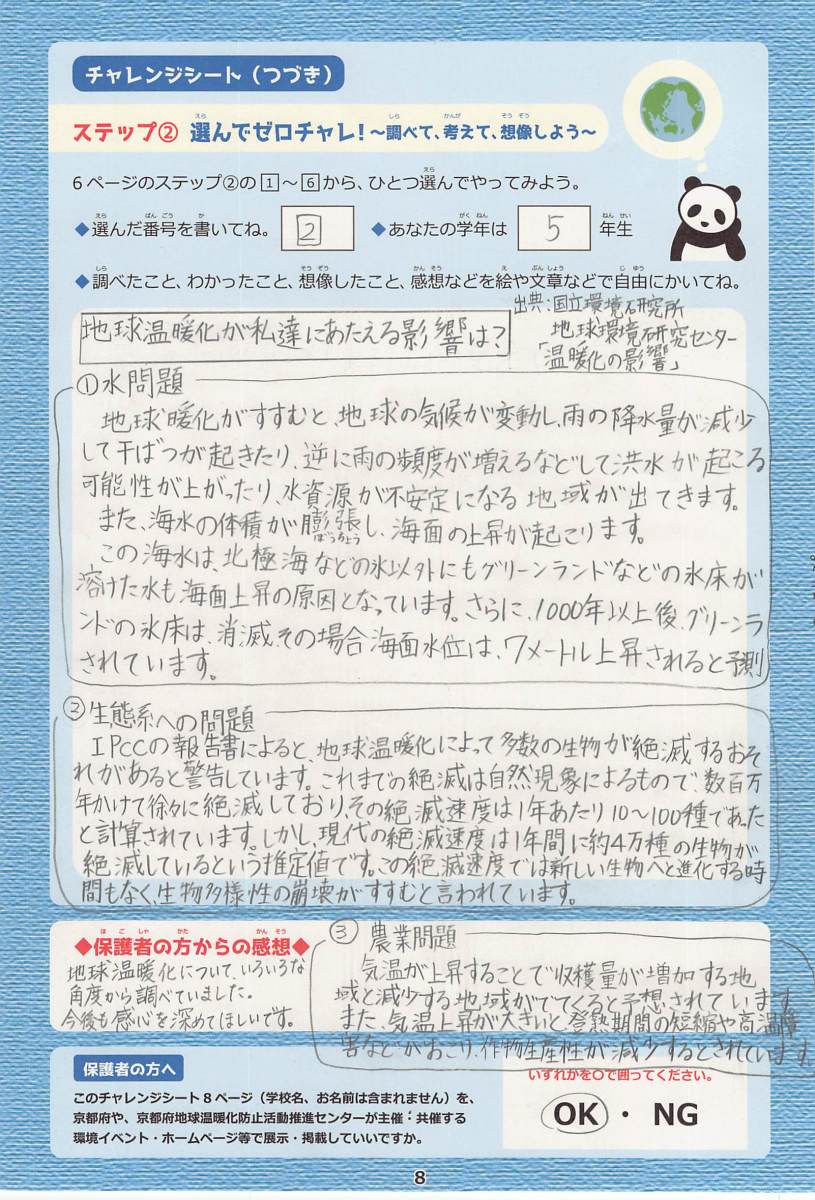 チャレンジシート（つづき）
ステップ② 選んでゼロチャレ！～調べて、考えて、想像しよう～
6ページのステップ②の1～6から、ひとつ選んでやってみよう。
◆選んだ番号を書いてね。 2 ◆あなたの学年は 5 年生
◆調べたこと、わかったこと、想像したこと、感想などを絵や文章などで自由にかいてね。
地球温暖化が私達にあたえる影響は？
出典:国立環境研究所
地球環境研究センター
「温暖化の影響」
①水問題
地球暖化がすすむと、地球の気候が変動し、雨の降水量が減少
して干ばつが起きたり、逆に雨の頻度が増えるなどして洪水が起こる
可能性が上がったり、水資源が不安定になる地域が出てきます。
また、海水の体積が膨張し、海面の上昇が起こります。
この海水は、北極海などの氷以外にもグリーンランドなどの氷床が
溶けた水も海面上昇の原因となっています。さらに、1000年以上後、グリーンラ
ンドの氷床は、消滅、その場合海面水位は、7メートル上昇されると予測
されています。
②生態系への問題
IPCCの報告書によると、地球温暖化によって多数の生物が絶滅するおそ
れがあると警告しています。これまでの絶滅は自然現象によるもので、数百万
年かけて徐々に絶滅しており、その絶滅速度は1年あたり10～100種であった
と計算されています。しかし、現代の絶滅速度は1年間に約4万種の生物が
絶滅しているという推定値です。この絶滅速度では新しい生物へと進化する時
間もなく、生物多様性の崩壊がすすむと言われています。
◆保護者の方からの感想◆
地球温暖化について、いろいろな
角度から調べていました。
今後も感心を深めてほしいです。
③農業問題
気温が上昇することで収穫量が増加する地
域と減少する地域がでてくると予想されています
また、気温上昇が大きいと登熟期間の短縮や高温障
害などがおこり、作物生産性が減少するとされています
保護者の方へ
このチャレンジシート8ページ（学校名、お名前は含まれません）を、
京都府や、京都府地球温暖化防止活動推進センターが主催・共催する
環境イベント・ホームページ等で展示・掲載していいですか。
いずれかを○で囲ってください。
OK ・ NG
8